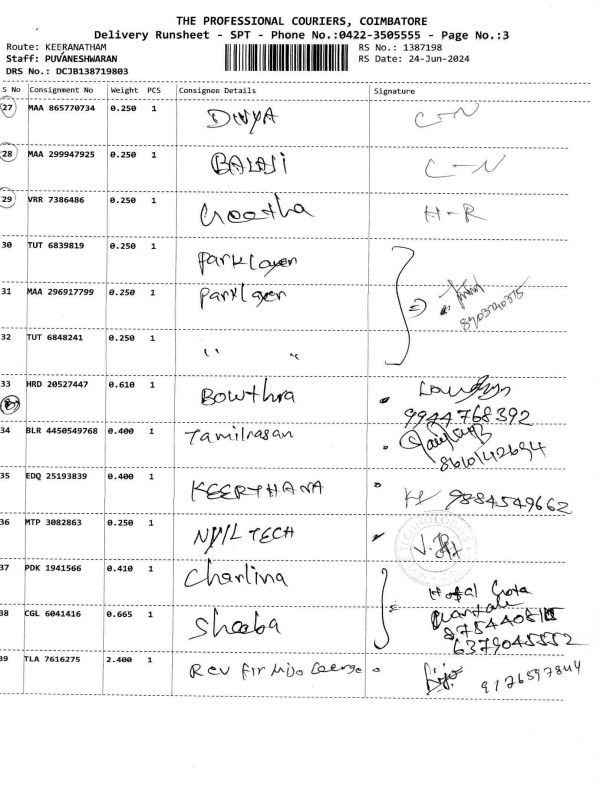 THE PROFESSIONAL COURIERS, COIMBATORE
Delivery Runsheet - SPT - Phone No.:0422-3505555 - Page No.:3
Route: KEERANATHAM RS No.: 1387198
Staff: PUVANESHWARAN RS Date: 24-Jun-2024
DRS No.: DCJB138719803
S No Consignment No Weight PCS Consignee Details Signature
27 MAA 865770734 0.250 1 DIVYA C-N
28 MAA 299947925 0.250 1 BALAJI C-N
29 VRR 7386486 0.250 1 Geetha H-R
30 TUT 6839819 0.250 1 Parklayer
31 MAA 296917799 0.250 1 Parklayer
32 TUT 6848241 0.250 1 " "
33 HRD 20527447 0.610 1 Bowthra
9944768392
34 BLR 4450549768 0.400 1 Tamilrasan
8610142694
35 EDQ 25193839 0.400 1 KEERTHANA 9884549662
36 MTP 3082863 0.250 1 TECH
37 PDK 1941566 0.410 1 Charlina
38 CGL 6041416 0.665 1 Sheeba
6379045552
39 TLA 7616275 2.400 1 Rev Fir Mijo George 9176597844